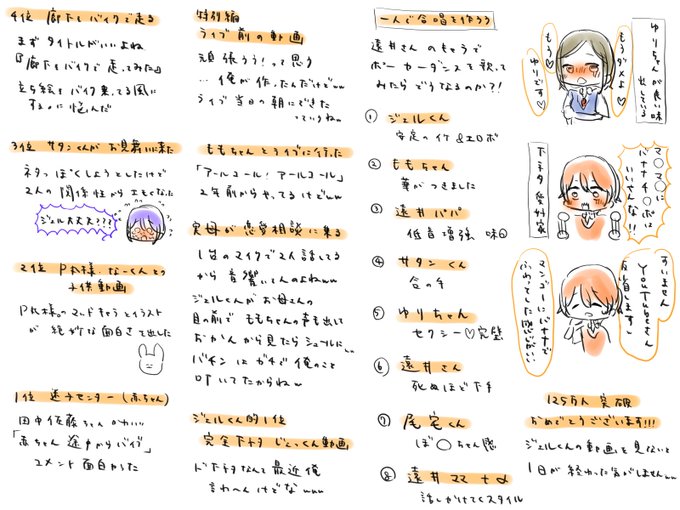 4位 廊下をバイクで走る
まずタイトルがいいよね
「廊下をバイクで走ってみた」
立ち絵をバイク乗ってる風に
するのに悩んだ
3位 サタンくんがお見舞いに来た
ネタっぽくしようとしたけど
2人の関係性がエモくなった
ジェル大丈夫???
2位 P丸様。なーくんとの
子供動画
P丸様。のコードもそうとイラスト
が絶妙な面白さで出した
1位 迷子センター(赤ちゃん)
田中佐藤ちゃんかわいい
「赤ちゃん途中からバイブ」
コメント面白かった
特別編
ライブ前の動画
頑張ろう!って思う
…俺が作ったんだけどww
ライブ当日の朝にできた
っていうね
ももちゃんとライブに行った
「アールコール!アールコール」
2年前からやってるけどww
父母が恋愛相談に乗る
1台のマイクで2人話してる
から音響いてんのよねww
ジェルくんがお母さんの
目の前でももちゃんの声も出して
おかんから見たらシュールにww
バチンはガチで俺のこと
叩いてたからねw
ジェルくん的1位
完全下ネタじぇっくん動画
ド下ネタなんて最近俺
言わへんけどなwww
一人で合唱を作ろう
遠井さんのキャラで
ポーカーダンスを歌って
みたらどうなるのか?!
① ジェルくん
安定のイケ&エロボ
② ももちゃん
華がつきました
③ 遠井パパ
低音増強
④ サタンくん
合の手
⑤ ゆりちゃん
セクシー♡完璧
⑥ 遠井さん
死ぬほど下手
⑦ 尾宅くん
ぼ〇ちゃん感
⑧ 遠井ママ +α
話しかけてくスタイル
ゆりちゃんが良い味
出している
もうダメよ♡
もう♡
ゆりです♡
下ネタ愛好家
マ〇〇〇に
バナナチ〇ポは
いいさんな!!
すいません
YouTubeさん
反省します。
マンゴーにバナナで
ふわってした感じがいい
125万人突破
おめでとうございます!!!
ジェルくんの動画を見ないと
1日が終わった気がしませんww